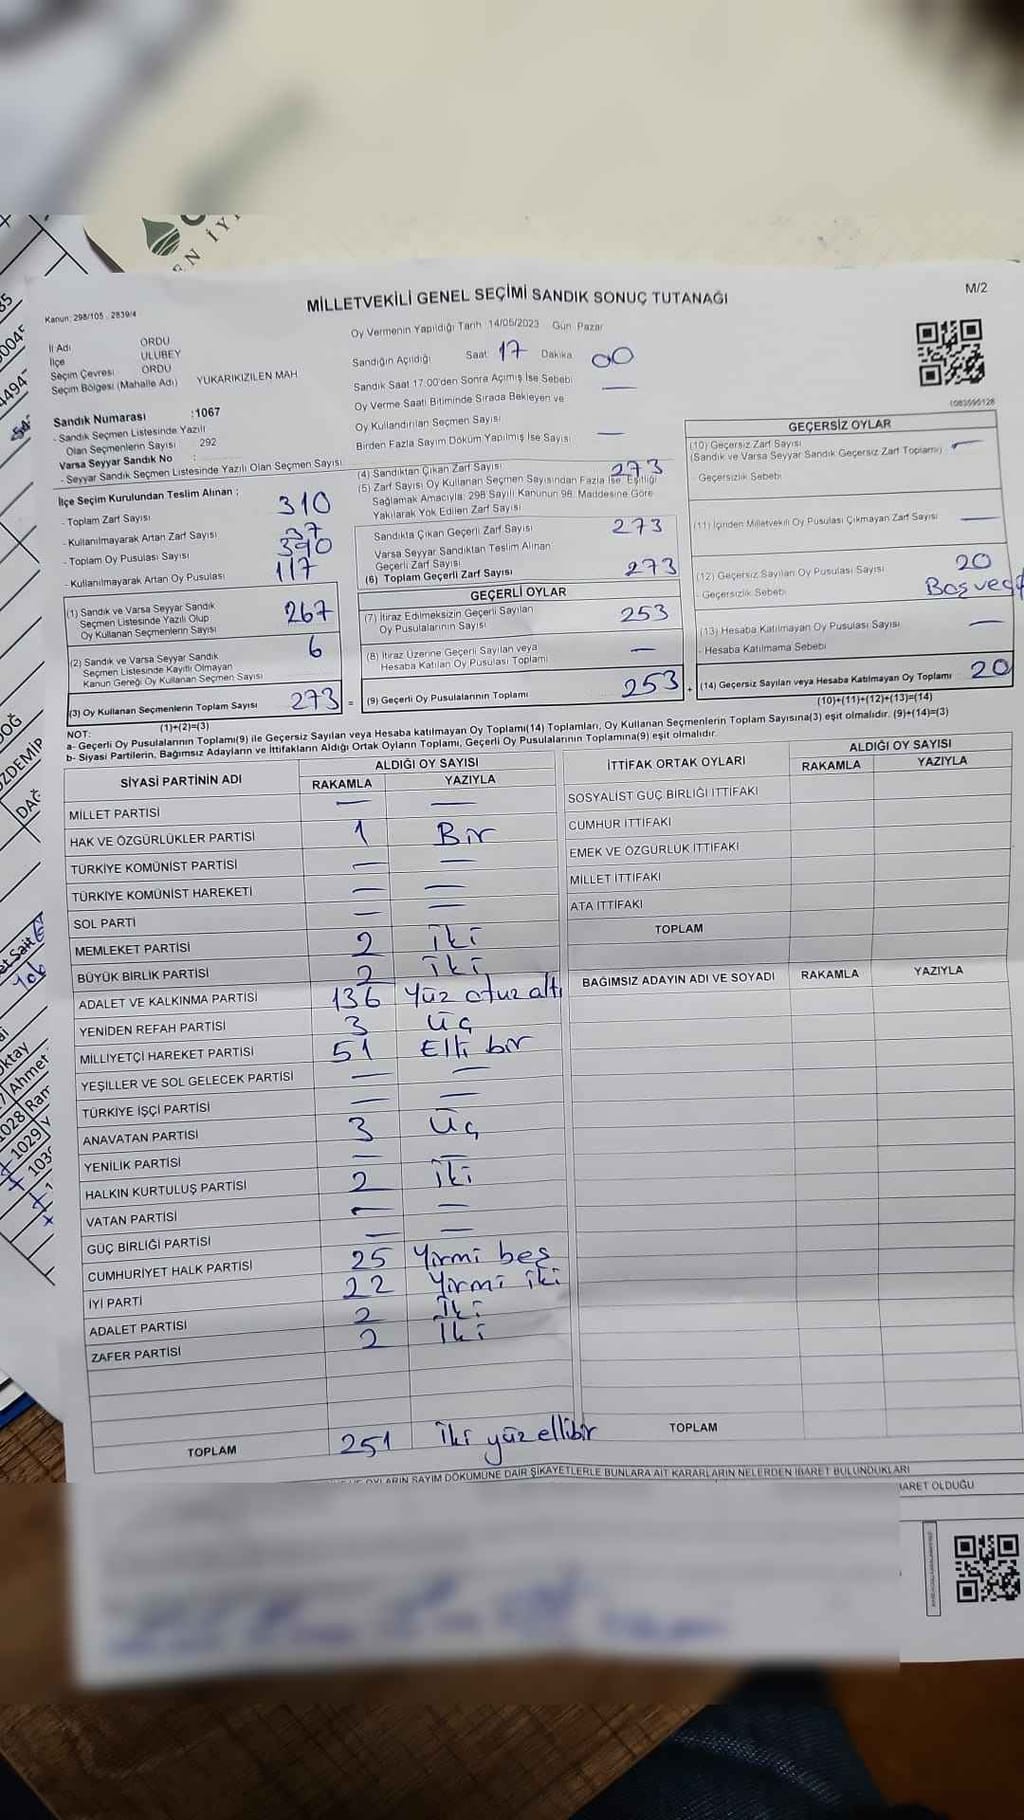 EN İYİ
MİLLETVEKİLİ GENEL SEÇİMİ SANDIK SONUÇ TUTANAĞI
M/2
Kanun: 298/105 , 2839/4
İl Adı ORDU
İlçe ULUBEY
Seçim Çevresi ORDU
Seçim Bölgesi (Mahalle Adı) YUKARIKIZILEN MAH.
Sandık Numarası :1067
- Sandık Seçmen Listesinde Yazılı
Olan Seçmenlerin Sayısı 292
Varsa Seyyar Sandık No :
- Seyyar Sandık Seçmen Listesinde Yazılı Olan Seçmen Sayısı
Oy Vermenin Yapıldığı Tarih 14/05/2023 Gün Pazar
Sandığın Açıldığı Saat 17 Dakika 00
Sandık Saat 17.00'den Sonra Açılmış İse Sebebi —
Oy Verme Saati Bitiminde Sırada Bekleyen ve
Oy Kullandırılan Seçmen Sayısı
Birden Fazla Sayım Döküm Yapılmış İse Sayısı —
1083595128
İlçe Seçim Kurulundan Teslim Alınan :
- Toplam Zarf Sayısı 310
- Kullanılmayarak Artan Zarf Sayısı 37
- Toplam Oy Pusulası Sayısı 390
- Kullanılmayarak Artan Oy Pusulası 117
(1) Sandık ve Varsa Seyyar Sandık
Seçmen Listesinde Yazılı Olup
Oy Kullanan Seçmenlerin Sayısı 267
(2) Sandık ve Varsa Seyyar Sandık
Seçmen Listesinde Kayıtlı Olmayan
Kanun Gereği Oy Kullanan Seçmen Sayısı 6
(3) Oy Kullanan Seçmenlerin Toplam Sayısı 273 =
(1)+(2)=(3)
(4) Sandıktan Çıkan Zarf Sayısı 273
(5) Zarf Sayısı Oy Kullanan Seçmen Sayısından Fazla İse, Eşitliği
Sağlamak Amacıyla; 298 Sayılı Kanunun 98. Maddesine Göre
Yakılarak Yok Edilen Zarf Sayısı
Sandıkta Çıkan Geçerli Zarf Sayısı 273
Varsa Seyyar Sandıktan Teslim Alınan
Geçerli Zarf Sayısı
(6) Toplam Geçerli Zarf Sayısı 273
GEÇERLİ OYLAR
(7) İtiraz Edilmeksizin Geçerli Sayılan
Oy Pusulalarının Sayısı 253
(8) İtiraz Üzerine Geçerli Sayılan veya
Hesaba Katılan Oy Pusulası Toplamı —
(9) Geçerli Oy Pusulalarının Toplamı 253 +
GEÇERSİZ OYLAR
(10) Geçersiz Zarf Sayısı
(Sandık ve Varsa Seyyar Sandık Geçersiz Zarf Toplamı) —
- Geçersizlik Sebebi
(11) İçinden Milletvekili Oy Pusulası Çıkmayan Zarf Sayısı —
(12) Geçersiz Sayılan Oy Pusulası Sayısı 20
- Geçersizlik Sebebi
(13) Hesaba Katılmayan Oy Pusulası Sayısı —
- Hesaba Katılmama Sebebi
(14) Geçersiz Sayılan veya Hesaba Katılmayan Oy Toplamı 20
(10)+(11)+(12)+(13)=(14)
NOT:
a- Geçerli Oy Pusulalarının Toplamı(9) ile Geçersiz Sayılan veya Hesaba katılmayan Oy Toplamı(14) Toplamları, Oy Kullanan Seçmenlerin Toplam Sayısına(3) eşit olmalıdır. (9)+(14)=(3)
b- Siyasi Partilerin, Bağımsız Adayların ve İttifakların Aldığı Ortak Oyların Toplamı, Geçerli Oy Pusulalarının Toplamına(9) eşit olmalıdır.
SİYASİ PARTİNİN ADI ALDIĞI OY SAYISI
RAKAMLA YAZIYLA
MİLLET PARTİSİ — —
HAK VE ÖZGÜRLÜKLER PARTİSİ 1 Bir
TÜRKİYE KOMÜNİST PARTİSİ — —
TÜRKİYE KOMÜNİST HAREKETİ — —
SOL PARTİ — —
MEMLEKET PARTİSİ 2 İki
BÜYÜK BİRLİK PARTİSİ 2 İki
ADALET VE KALKINMA PARTİSİ 136 Yüz otuz altı
YENİDEN REFAH PARTİSİ 3 Üç
MİLLİYETÇİ HAREKET PARTİSİ 51 Elli bir
YEŞİLLER VE SOL GELECEK PARTİSİ — —
TÜRKİYE İŞÇİ PARTİSİ — —
ANAVATAN PARTİSİ 3 Üç
YENİLİK PARTİSİ — —
HALKIN KURTULUŞ PARTİSİ 2 İki
VATAN PARTİSİ — —
GÜÇ BİRLİĞİ PARTİSİ — —
CUMHURİYET HALK PARTİSİ 25 Yirmi beş
İYİ PARTİ 22 Yirmi iki
ADALET PARTİSİ 2 İki
ZAFER PARTİSİ 2 İki
TOPLAM 251 İki yüz ellibir
İTTİFAK ORTAK OYLARI ALDIĞI OY SAYISI
RAKAMLA YAZIYLA
SOSYALİST GÜÇ BİRLİĞİ İTTİFAKI
CUMHUR İTTİFAKI
EMEK VE ÖZGÜRLÜK İTTİFAKI
MİLLET İTTİFAKI
ATA İTTİFAKI
TOPLAM
BAĞIMSIZ ADAYIN ADI VE SOYADI RAKAMLA YAZIYLA
TOPLAM
OYLARIN SAYIM DÖKÜMÜNE DAİR ŞİKAYETLERLE BUNLARA AİT KARARLARIN NELERDEN İBARET BULUNDUKLARI
İBARET OLDUĞU